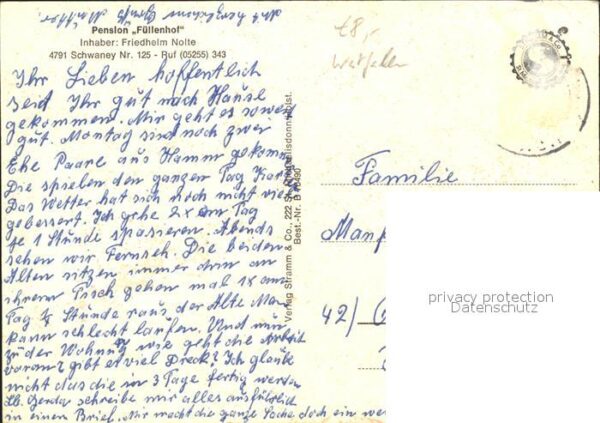 Pension „Füllenhof“
Inhaber: Friedhelm Nolte
4791 Schwaney Nr. 125 - Ruf (05255) 343
Ihr Lieben hoffentlich
seid Ihr gut nach Hause
gekommen. Mir geht es soweit
gut. Montag sind noch zwei
Ehe Paare aus Hamm gekomm
Die spielen den ganzen Tag Kar
Das Wetter hat sich noch nicht viel
gebessert. Ich gehe 2x am Tag
je 1 Stunde spazieren. Abends
sehen wir Fernseh. Die beiden
Alten sitzen immer drin an
ihrem Tisch gehen mal 1x am
Tag ½ Stunde raus der Alte Ma
kann schlecht laufen. Und nun
zu der Wohnung wie geht die Arbeit
voran? gibt es viel Dreck? Ich glaube
nicht das die in 3 Tage fertig werden
Lb. Gerda schreibe mir alles ausführlich
in einen Brief. Mir macht die ganze Sache doch ein we
Verlag Stramm & Co., 222 St. Michaelisdonn/Holst.
Best.-Nr. B
t8,-
Westfalen
Familie
Manf
42/
privacy protection
Datenschutz